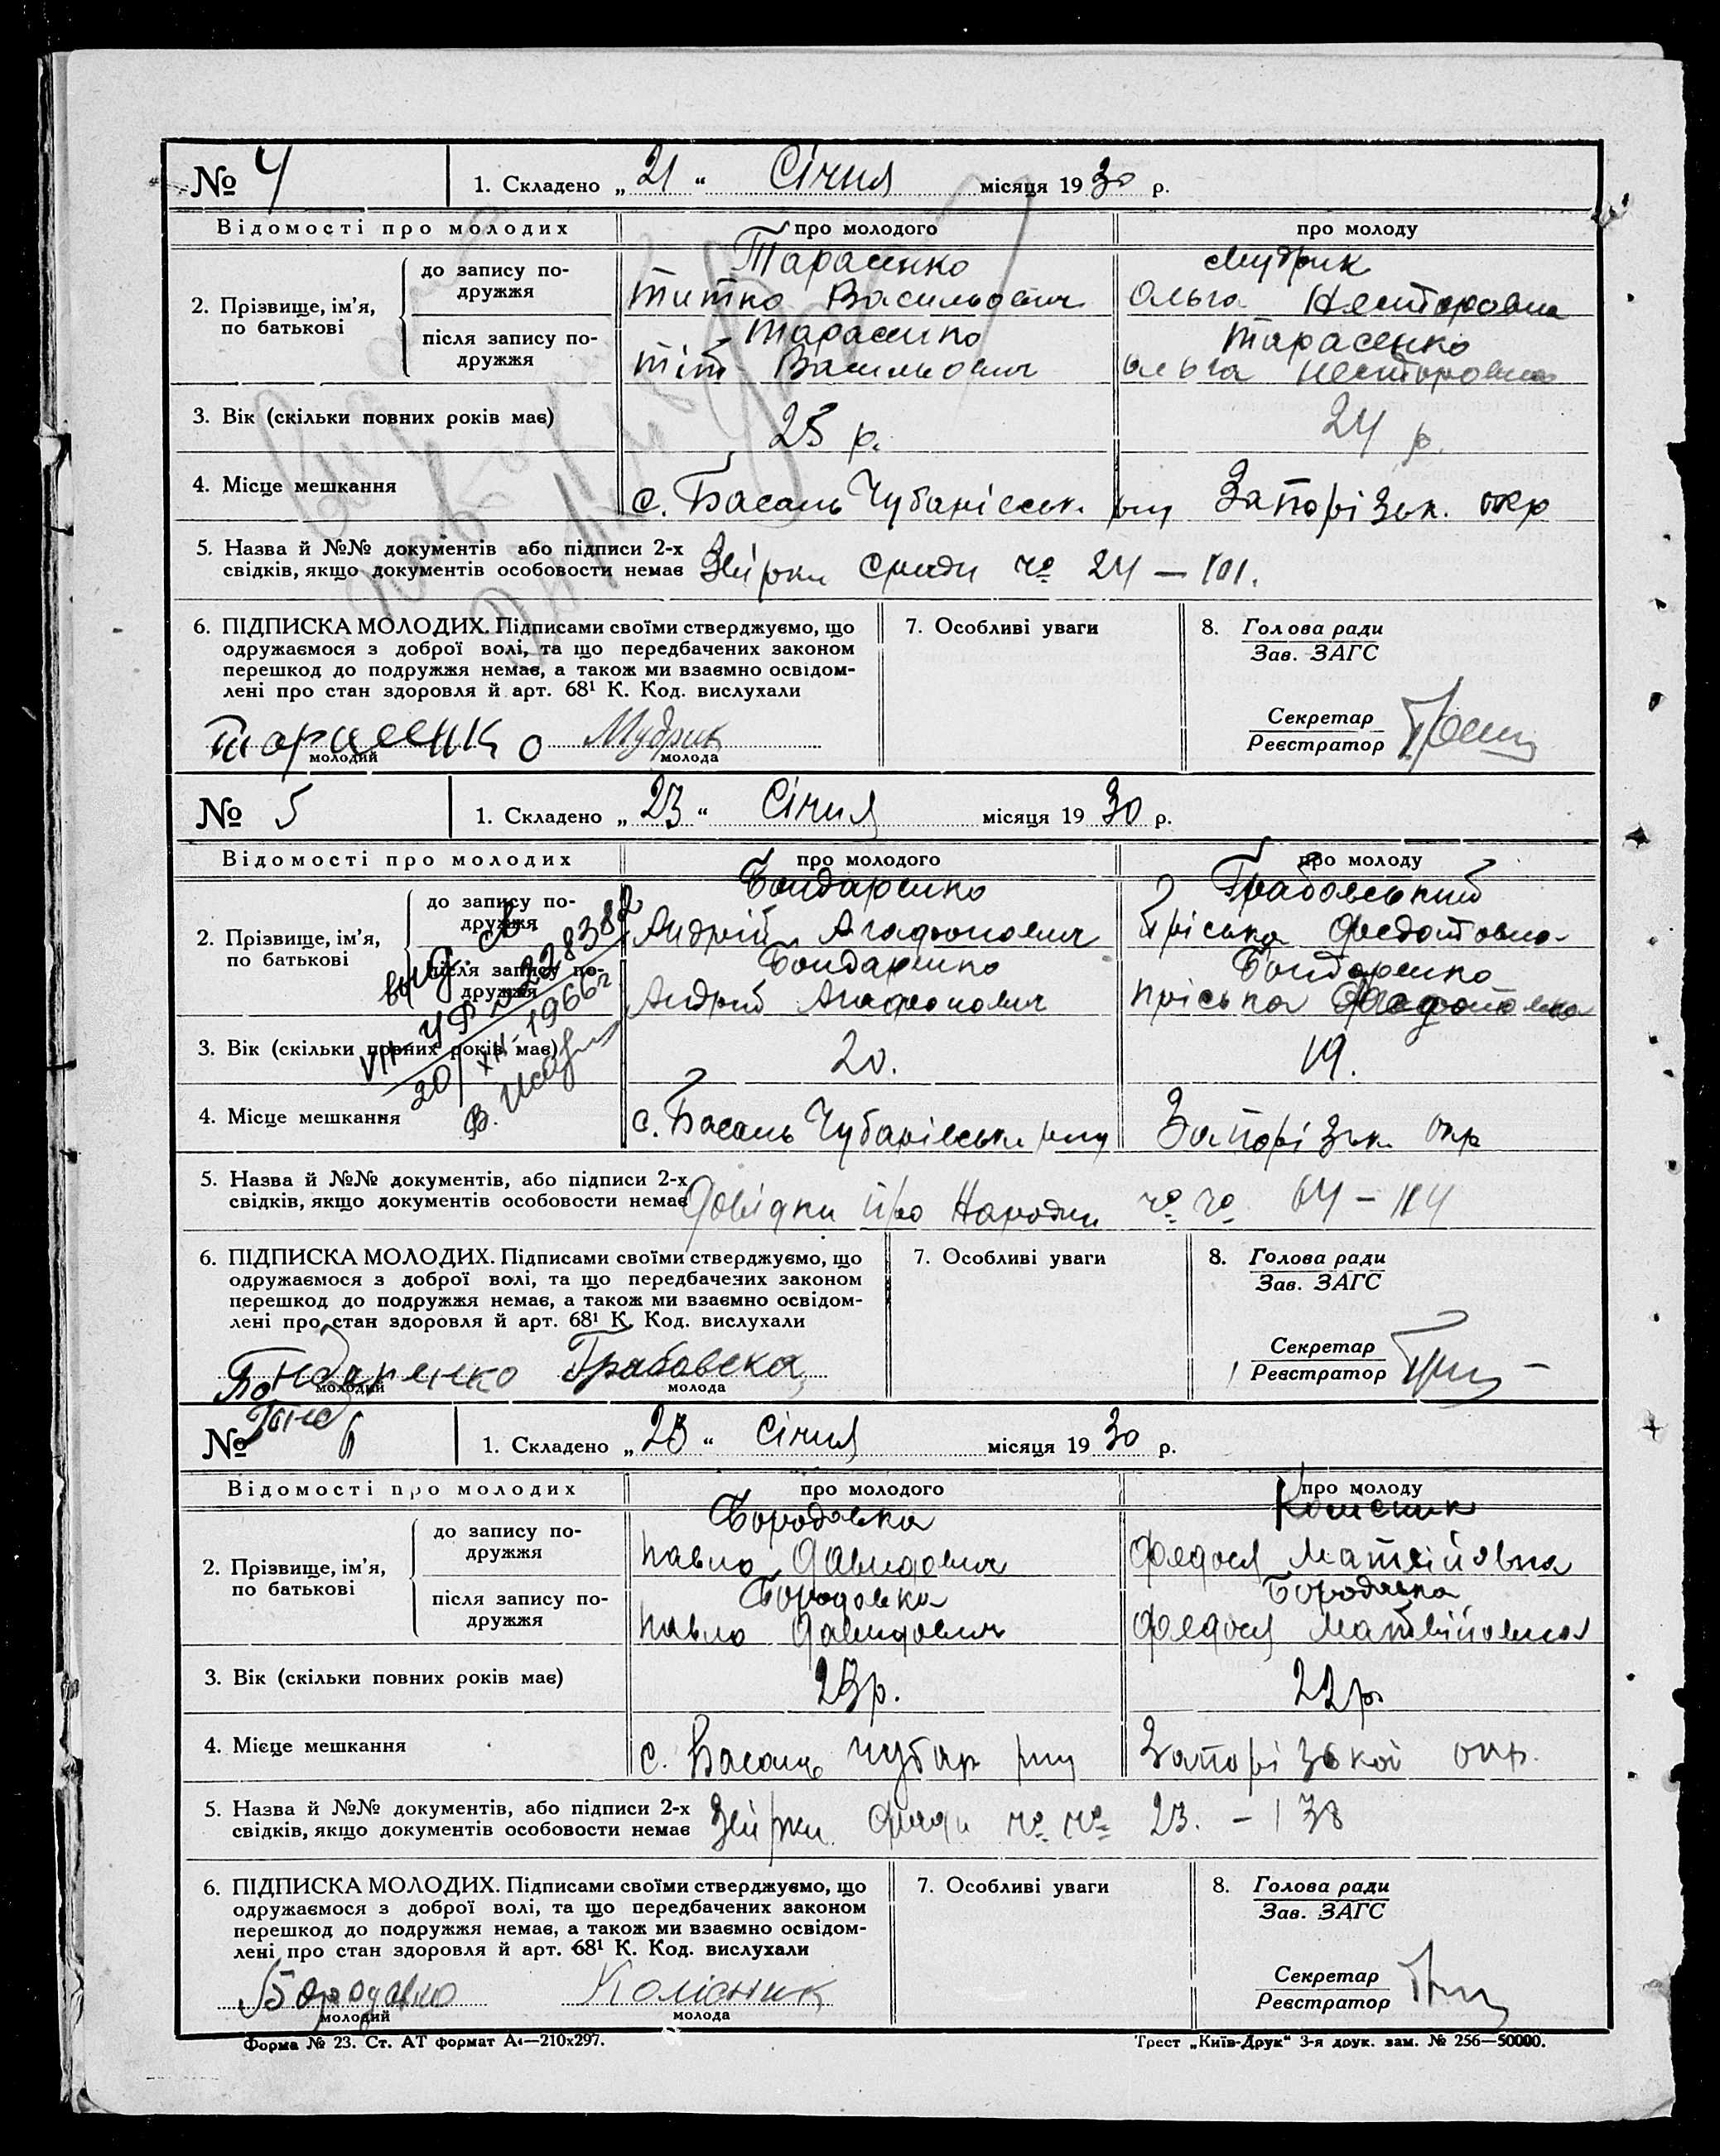 № 4 1. Складено „ 21 “ Січня місяця 19 30 р.
Відомості про молодих про молодого про молоду
2. Прізвище, ім'я, по батькові
до запису подружжя
Тарасенко Мудрик
Титко Васильович Ольга Несторовна
після запису подружжя
Тарасенко Тарасенко
Тіт Васильович Ольга Несторовна
3. Вік (скільки повних років має) 25 р. 24 р.
4. Місце мешкання с. Басань Чубарівськ. р-ну Запорізьк. окр
5. Назва й №№ документів або підписи 2-х
свідків, якщо документів особовости немає № 24 — 101.
6. ПІДПИСКА МОЛОДИХ. Підписами своїми стверджуємо, що
одружаємося з доброї волі, та що передбачених законом
перешкод до подружжя немає, а також ми взаємно освідом-
лені про стан здоровля й арт. 68¹ К. Код. вислухали
Тарасенко Мудрик
молодий молода
7. Особливі уваги
8. Голова ради
Зав. ЗАГС
Секретар
Реєстратор
№ 5 1. Складено „ 23 “ Січня місяця 19 30 р.
Відомості про молодих про молодого про молоду
2. Прізвище, ім'я, по батькові
до запису подружжя
Бондаренко Грабовський
Андрій Агафонович Пріська Федотовна
після запису подружжя
Бондаренко Бондаренко
Андрій Агафонович Пріська Федотовна
выд. св.
VII-УР № 228382
20/XII-1966г
3. Вік (скільки повних років має) 20. 19.
4. Місце мешкання с. Басань Чубарівськ р-ну Запорізьк окр
5. Назва й №№ документів, або підписи 2-х
свідків, якщо документів особовости немає Довідки про Народж № № 64 — 114
6. ПІДПИСКА МОЛОДИХ. Підписами своїми стверджуємо, що
одружаємося з доброї волі, та що передбачених законом
перешкод до подружжя немає, а також ми взаємно освідом-
лені про стан здоровля й арт. 68¹ К. Код. вислухали
Бондаренко Грабовска
молодий молода
7. Особливі уваги
8. Голова ради
Зав. ЗАГС
Секретар
Реєстратор
№ 6 1. Складено „ 23 “ Січня місяця 19 30 р.
Відомості про молодих про молодого про молоду
2. Прізвище, ім'я, по батькові
до запису подружжя
Бородавка Колісник
Павло Давидович Федося Матвійовна
після запису подружжя
Бородавка Бородавка
Павло Давидович Федося Матвійовна
3. Вік (скільки повних років має) 23 р. 22 р
4. Місце мешкання с. Басань Чубар р-ну Запорізької окр.
5. Назва й №№ документів, або підписи 2-х
свідків, якщо документів особовости немає № № 23. — 138
6. ПІДПИСКА МОЛОДИХ. Підписами своїми стверджуємо, що
одружаємося з доброї волі, та що передбачених законом
перешкод до подружжя немає, а також ми взаємно освідом-
лені про стан здоровля й арт. 68¹ К. Код. вислухали
Бородавко Колісник
молодий молода
7. Особливі уваги
8. Голова ради
Зав. ЗАГС
Секретар
Реєстратор
Форма № 23. Ст. АТ формат А4—210х297. Трест „Київ-Друк“ 3-я друк. зам. № 256—50000.